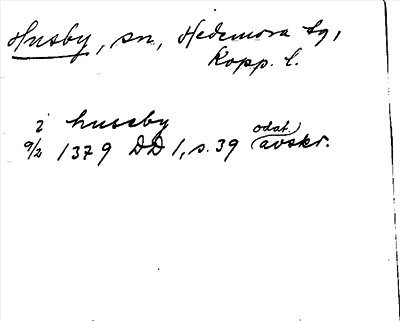 Husby, sn, Hedemora tg,
Kopp. l.
i hussby
9/2 1379 DD 1, s. 39 odat. avskr.